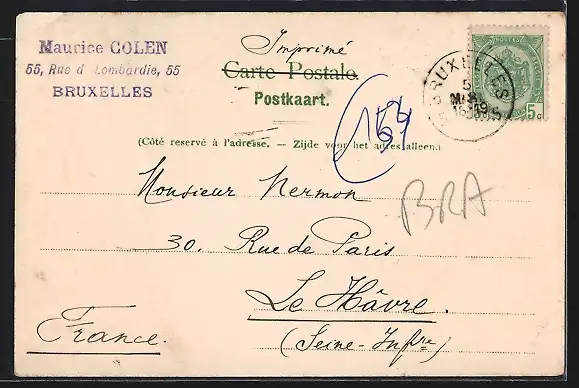 Maurice COLEN
55, Rue d Lombardie, 55
BRUXELLES
Imprimé
Carte Postale.
Postkaart.
(Côté reservé à l'adresse. — Zijde voor het adres alleen.)
BRUXELLES
5
5 c
154
BRA
Monsieur Nermon
30. Rue de Paris
Le Hâvre.
(Seine-Infre)
France.